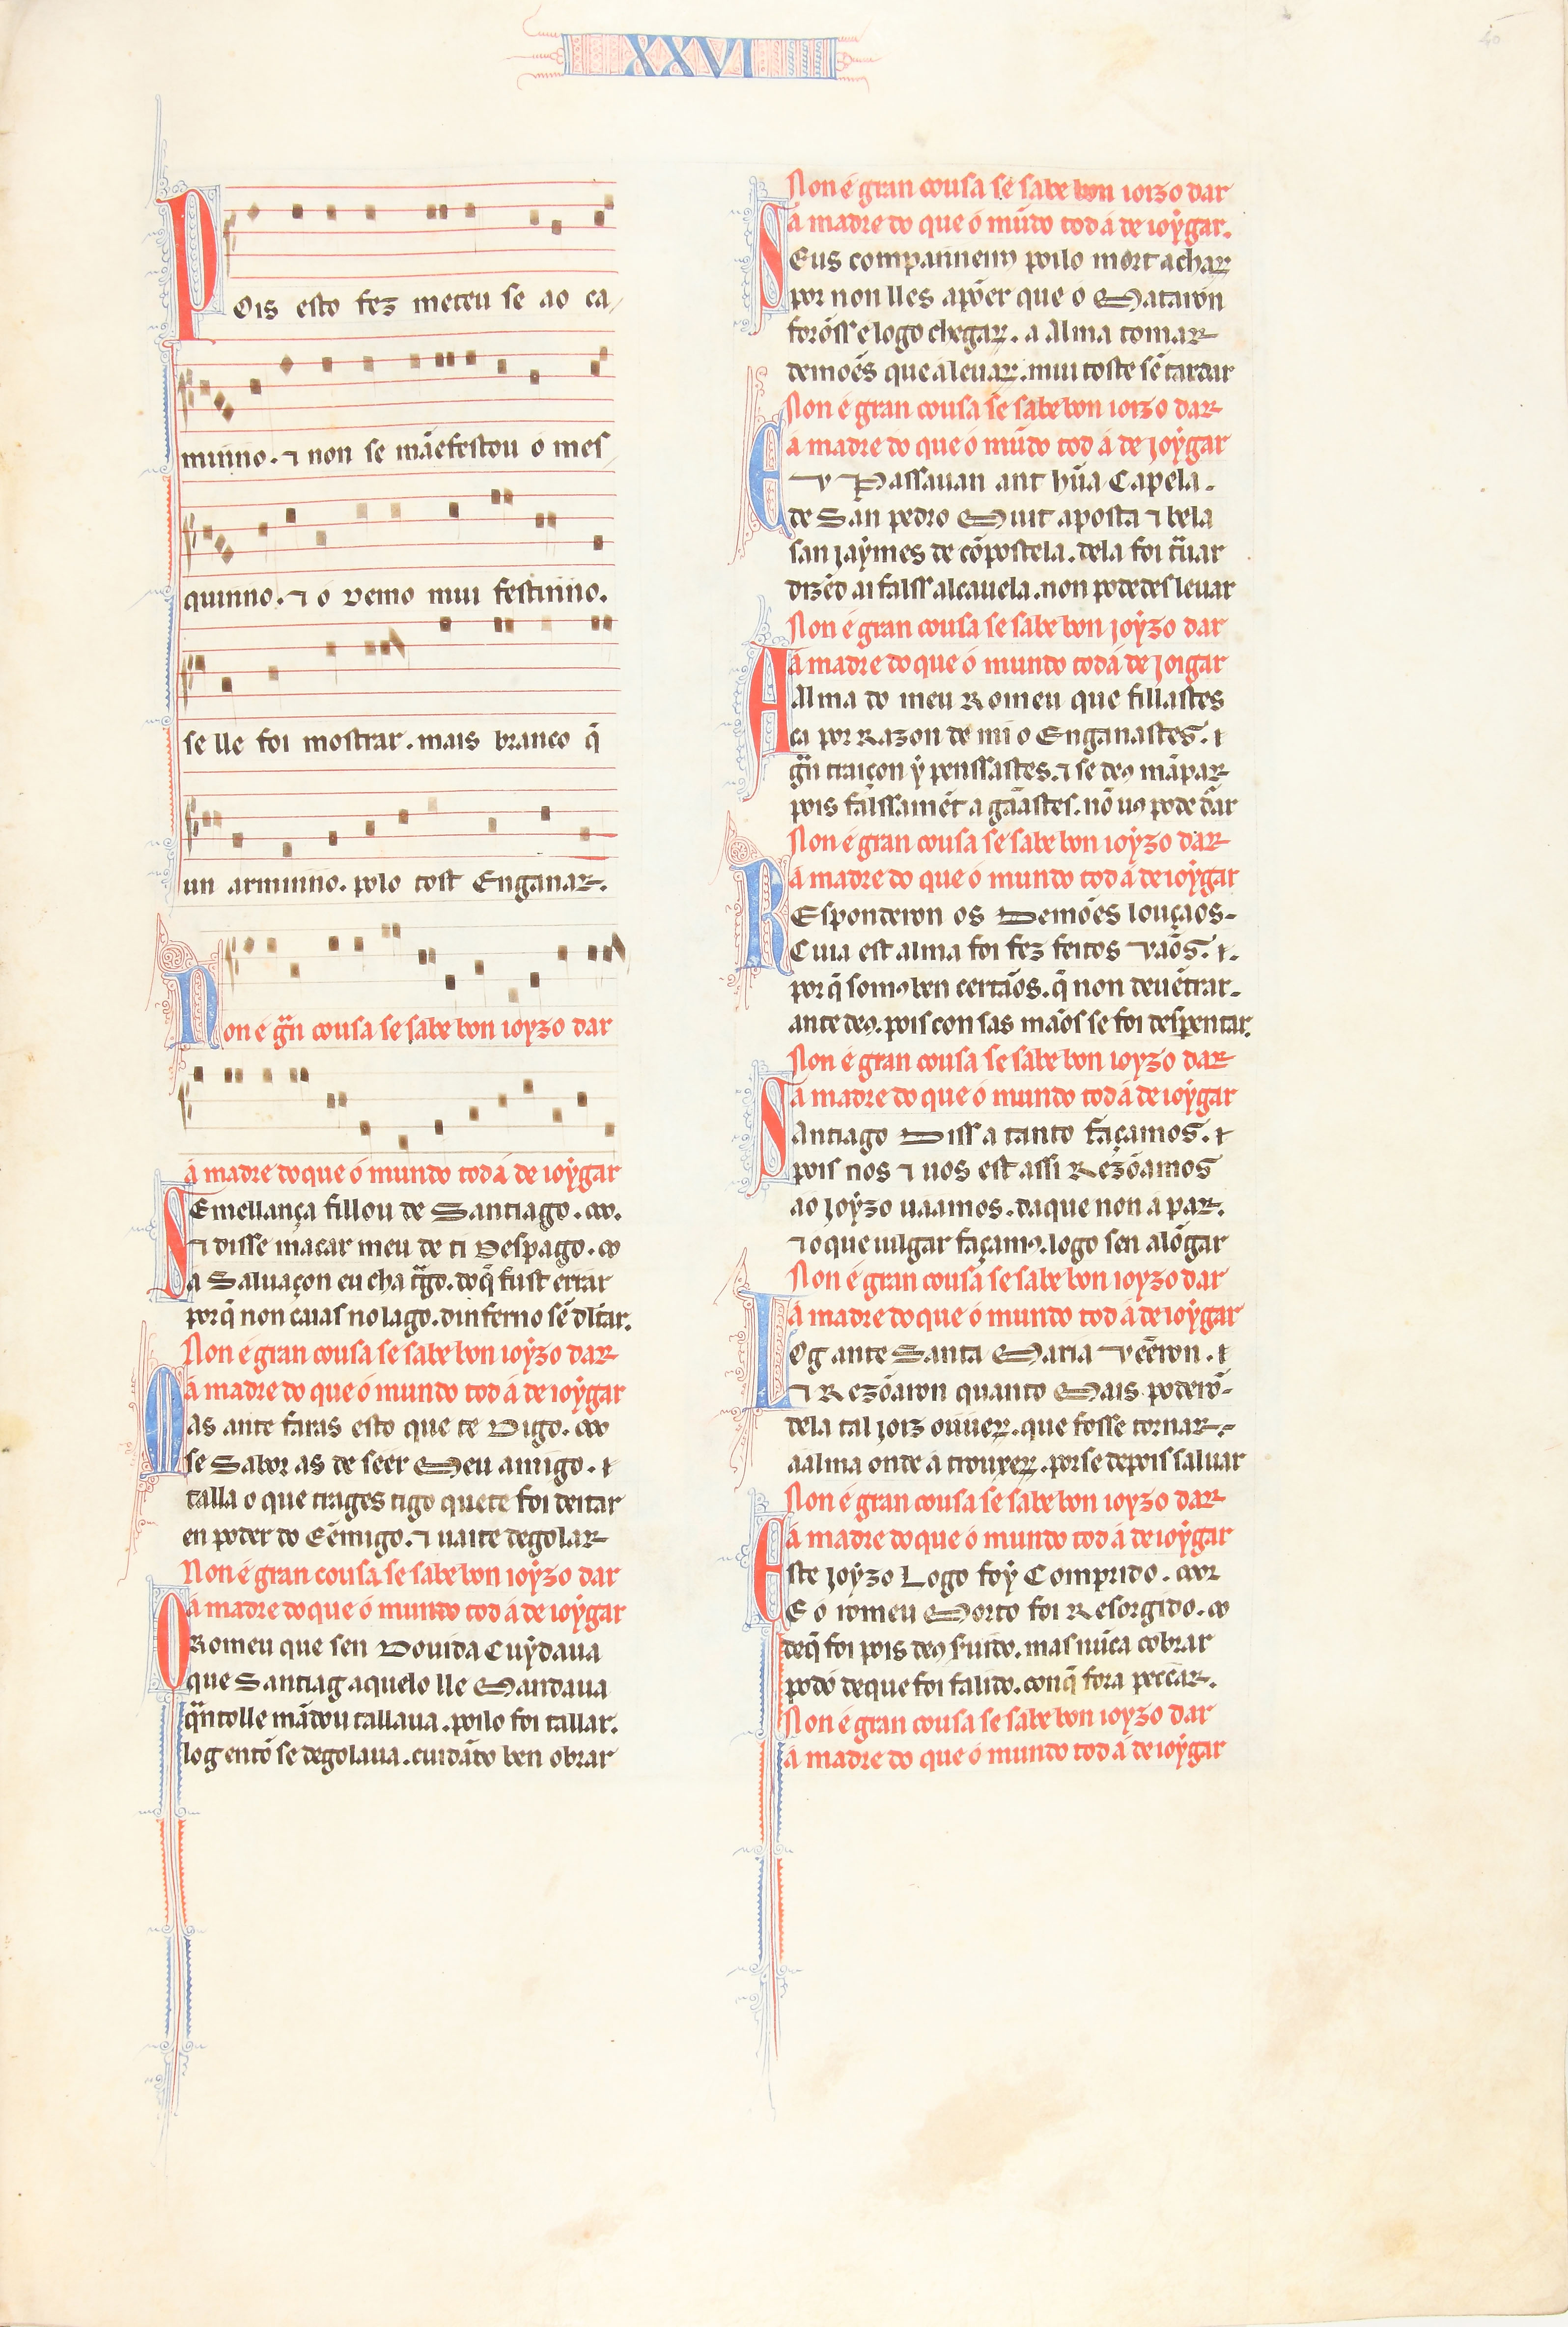 XXVI
40
Pois esto fez meteu se ao ca/
minno. ⁊ non se mãefestou o mes/
quinno. ⁊ o demo mui festinno.
se lle foi mostrar. mais branco q̃
un arminno. polo tost Enganar.
Non é gñ cousa se sabe bon ioyzo dar
á madre do que ó mundo tod á de ioẏgar
Semellança fillou de Santiago.
⁊ disse macar meu de ti Despago.
á Saluaçon eu cha trago. do q̃ fust errar
por q̃ non caias no lago. dinferno sẽ dltar.
Non é gran cousa se sabe bon ioẏzo dar
á madre do que ó mundo tod á de ioẏgar
Mas ante faras esto que te Digo.
se Sabor as de seer Meu amigo. ⁊
talla o que trages tigo que te foi deitar
en poder do Eẽmigo. ⁊ uaite degolar
Non é gran cousa se sabe bon ioẏzo dar
á madre do que ó mundo tod á de ioẏgar
O Romeu que sen Douida Cuẏdaua
que Santiag aquelo lle Mandaua
q̃nto lle mãdou tallaua. poilo foi tallar.
log entõ se degolaua. cuidãdo ben obrar
Non é gran cousa se sabe bon ioizo dar
á madre do que ó mũdo tod á de ioẏgar.
Seus companneiros poilo mort achar
por non lles apõer que o Mataron
forõss e logo chegar. a alma tomar
demoẽs que a leuar. mui toste sẽ tardar
Non é gran cousa se sabe bon ioizo dar
á madre do que ó mũdo tod á de joẏgar
E u Passauan ant hũa Capela.
de San pedro Muit aposta ⁊ bela
san jaẏmes de cõpostela. dela foi tẽuar
dizẽd ai falss alcauela. non podedes leuar
Non é gran cousa se sabe bon joẏzo dar
á madre do que ó mundo tod á de joigar
A alma do meu Romeu que fillastes
ca por Razon de mi o Enganastes. ⁊
gñ traiçon ẏ penssastes. ⁊ se deus mãpar
pois falssamẽt a gãastes. nõ uus pode dãr
Non é gran cousa se sabe bon ioẏzo dar
á madre do que ó mundo tod á de ioẏgar
REsponderon os Demões louçaos-
Cuia est alma foi fez feitos Vaõs. ⁊.
por q̃ somos ben certãos. q̃ non deuẽtrar.
ante deus. pois con sas mãos se foi despẽntar.
Non é gran cousa se sabe bon ioyzo dar
á madre do que ó mundo tod á de ioẏgar
Santiago Diss a tanto façamos. ⁊
pois nos ⁊ uos est assi Rezõamos
ao joẏzo uaamos. da que non á par.
⁊ o que iulgar façamos. logo sen alõgar
Non é gran cousa se sabe bon ioyzo dar
á madre do que ó mundo tod á de ioẏgar
Log ante Santa Maria Veẽron. ⁊
⁊ Rezõaron quanto Mais poderõ-
dela tal joiz ouuer. que fosse tornar.
a alma onde a trouxer. por se depois saluar
Non é gran cousa se sabe bon ioyzo dar
á madre do que ó mundo tod á de ioẏgar
Este joẏzo Logo foẏ Comprido.
E o romeu Morto foi Resorgido.
de q̃ foi pois deus suido. mas nũca cobrar
podo de que foi falido. con q̃ fora peccar.
Non é gran cousa se sabe bon ioyzo dar
á madre do que ó mundo tod á de ioẏgar